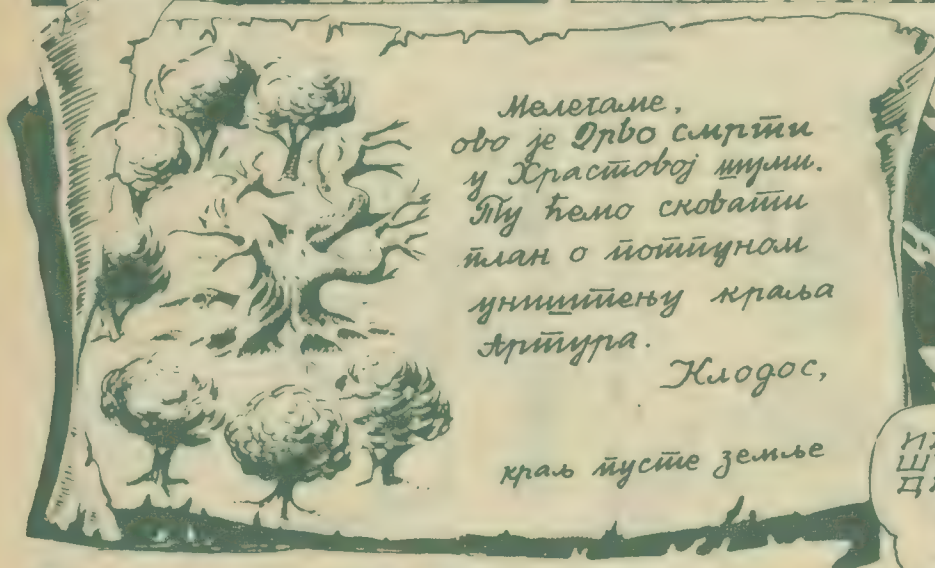 Мелегаме,
ово је Дрво смрти
у Храстовој шуми.
Ту ћемо сковати
план о потпуном
уништењу краља
Артура.
Клодос,
краљ пусте земље